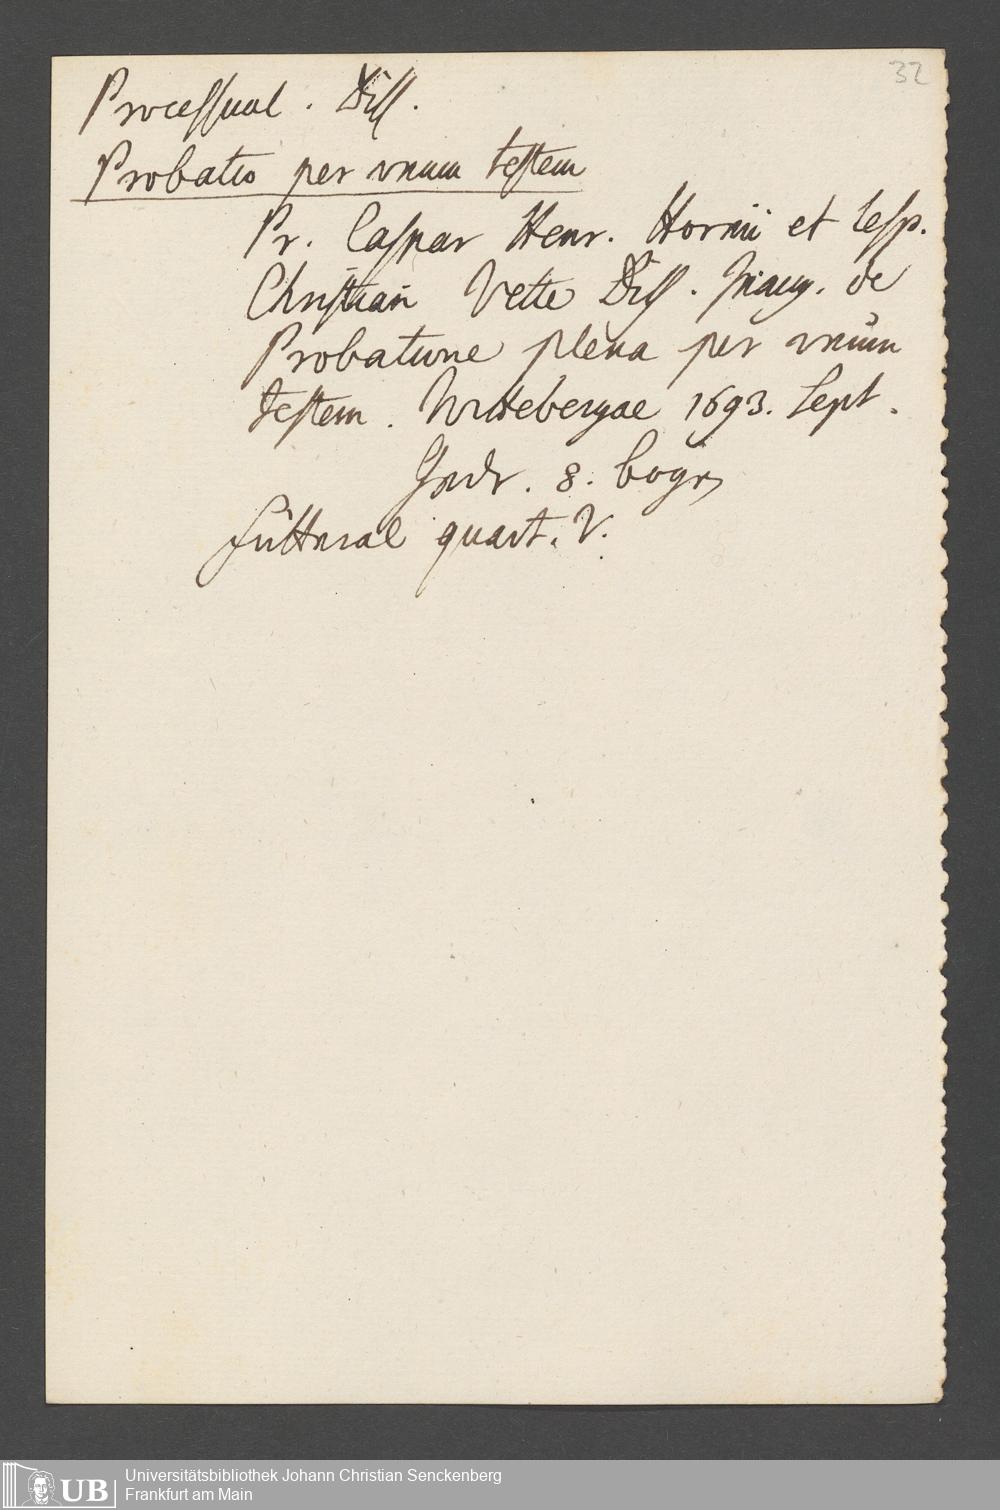 32
Processual. Diss.
Probatio per vnum testem
Pr. Caspar Henr. Hornii et resp.
Christian Vette Diss. Inaug. de
Probatione plena per vnum
testem. Wittebergae 1693. Sept.
8. bogen
Futteral quart. V.
Universitätsbibliothek Johann Christian Senckenberg
Frankfurt am Main
UB